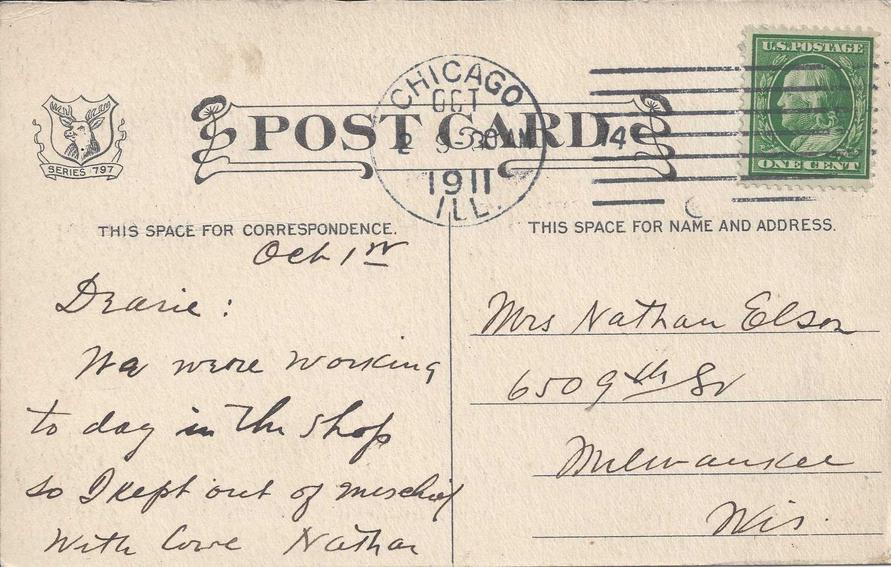 U.S.POSTAGE
ONE CENT
CHICAGO
OCT
2 9-30AM
1911
ILL.
14
POST CARD
SERIES 797
THIS SPACE FOR CORRESPONDENCE.
THIS SPACE FOR NAME AND ADDRESS.
Oct 1st
Dearie:
We were working
to day in the shop
so I kept out of mischief
With Love Nathan
Mrs Nathan Elson
650 9th St
Milwaukee
Wis.